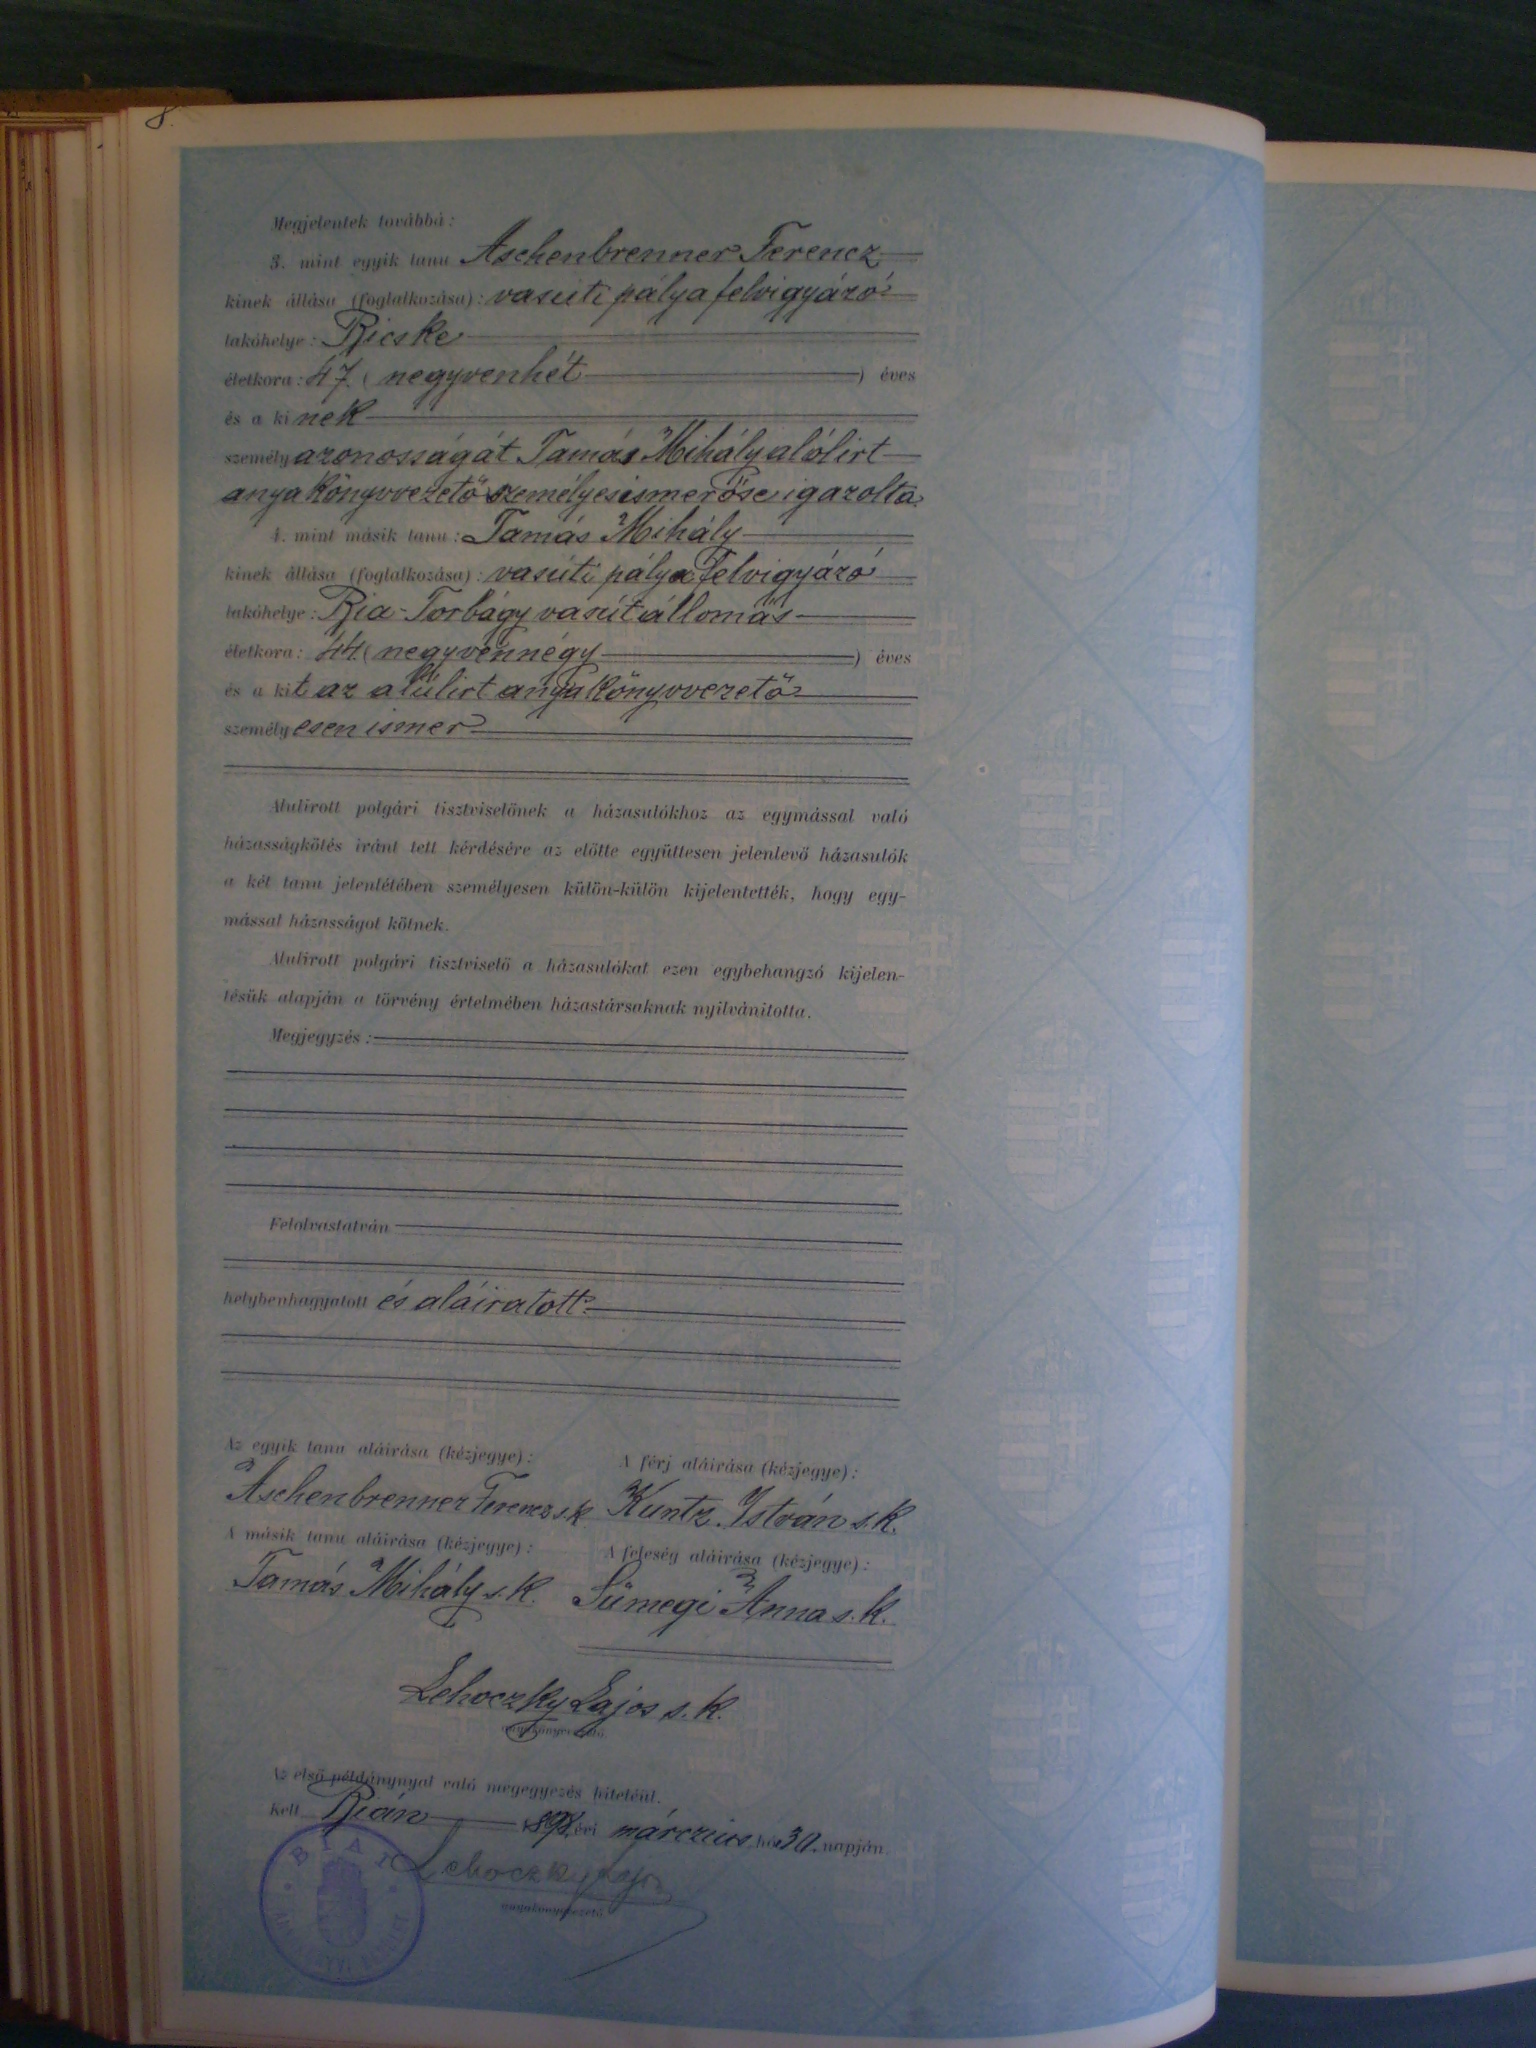 8.
Megjelentek továbbá:
3. mint egyik tanu Aschenbrenner Ferencz
kinek állása (foglalkozása): vasúti pálya felvigyázó
lakóhelye: Bicske
életkora: 47. (negyvenhét) éves
és a kinek
személyazonosságát Tamás Mihály alólirt
anyakönyvvezető személyes ismerőse igazolta.
4. mint másik tanu: Tamás Mihály
kinek állása (foglalkozása): vasúti pálya felvigyázó
lakóhelye: Bia-Torbágy vasútállomás
életkora: 44. (negyvennégy) éves
és a kit az alúlirt anyakönyvvezető
személyesen ismer
Alulirott polgári tisztviselőnek a házasulókhoz az egymással való
házasságkötés iránt tett kérdésére az előtte együttesen jelenlevő házasulók
a két tanu jelenlétében személyesen külön-külön kijelentették, hogy egy-
mással házasságot kötnek.
Alulirott polgári tisztviselő a házasulókat ezen egybehangzó kijelen-
tésük alapján a törvény értelmében házastársaknak nyilvánitotta.
Megjegyzés:
Felolvastatván
helybenhagyatott és aláiratott.
Az egyik tanu aláirása (kézjegye): A férj aláirása (kézjegye):
Aschenbrenner Ferencz s.k. Kuntz István s.k.
A másik tanu aláirása (kézjegye): A feleség aláirása (kézjegye):
Tamás Mihály s.k. Sümegi Anna s.k.
Lehoczky Lajos s.k.
anyakönyvvezető.
Az első példánynyal való megegyezés hiteléül.
Kelt Bián 1898. évi márczius hó 30. napján
Lehoczky Lajos
anyakönyvvezető.
BIAI